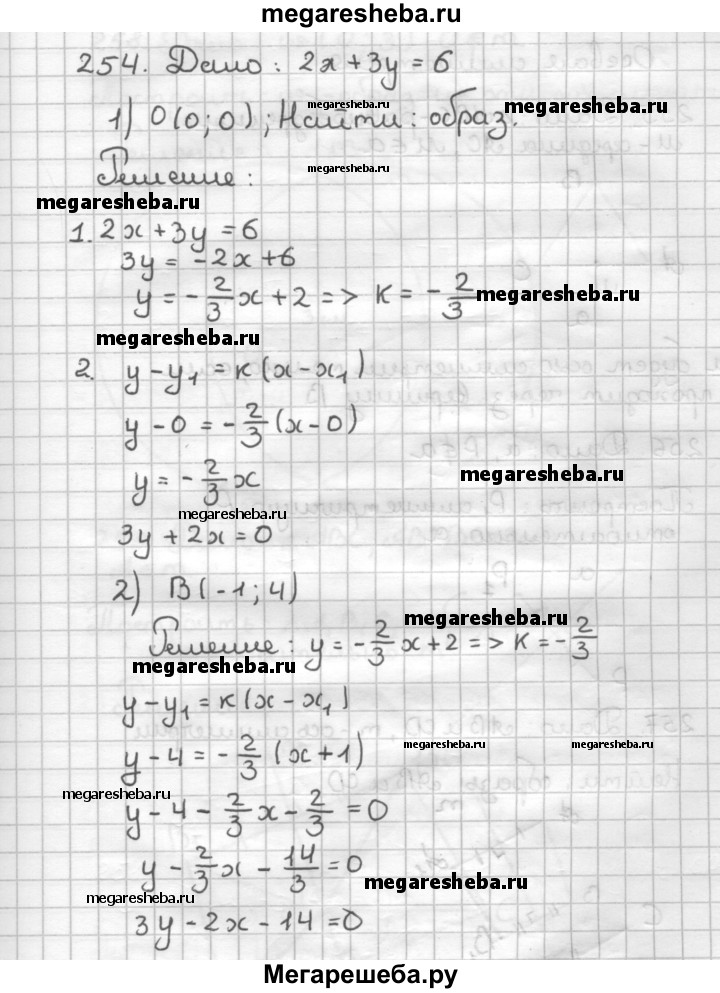 megaresheba.ru
254. Дано: 2x + 3y = 6
megaresheba.ru megaresheba.ru
1) O(0; 0); Найти: образ.
Решение: megaresheba.ru
megaresheba.ru
1. 2x + 3y = 6
3y = -2x + 6
y = -2/3 x + 2 => K = -2/3 megaresheba.ru
megaresheba.ru
2. y - y₁ = K(x - x₁)
y - 0 = -2/3 (x - 0)
y = -2/3 x megaresheba.ru
megaresheba.ru
3y + 2x = 0
2) B(-1; 4)
megaresheba.ru
Решение: y = -2/3 x + 2 => K = -2/3
megaresheba.ru
y - y₁ = K(x - x₁)
y - 4 = -2/3 (x + 1) megaresheba.ru megaresheba.ru
megaresheba.ru
y - 4 - 2/3 x - 2/3 = 0
y - 2/3 x - 14/3 = 0 megaresheba.ru
megaresheba.ru
3y - 2x - 14 = 0
Мегарешеба.ру